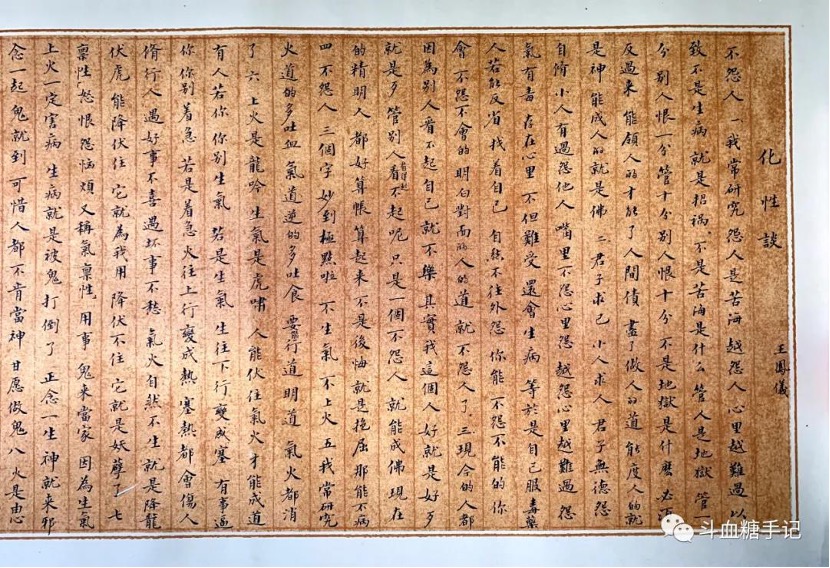 化性談
王鳳儀
不怨人 一我常研究 怨人是苦海 越怨人 心里越難過 以
致不是生病 就是招禍 不是苦海是什么 管人是地獄 管一
分 別人恨一分 管十分別人恨十分 不是地獄是什麼 必須
反過来 能領人的才能了人間債 盡了做人的道 能度人的就
是神 能成人的就是佛 二君子求己 小人求人 君子無德怨
自脩 小人有過怨他人 嘴里不怨心里怨 越怨心里越難過 怨
氣有毒 存在心里 不但難受 還會生病 等於是自己服毒藥
人若能反省 找着自己 自然不往外怨 你能 不怨不能的 你
會 不怨不會的 明白對面的人的道 就不怨人了 三現今的人都
因為別人看不起自己 就不樂 其實我這個人 好就是好 歹
就是歹 管別人看起看不起呢 只是一個不怨人 就能成佛 現在
的精明人 都好算帳 算起来 不是後悔 就是抱屈 那能不病
四 不怨人 三個字 妙到極點啦 不生氣 不上火 五我常研究
火道的多吐血 氣道逆的多吐食 要學行道 明道 氣火都消
了 六上火是龍吟 生氣是虎嘯 人能伏住氣火 才能成道
有人若你 你別生氣 若是生氣 生往下行 變成塞 有事逼
你 你別着急 若是着急 火往上行 變成熱 塞熱都會傷人
脩行人 遇好事不喜 遇坏事不愁 氣火自然不生 就是降龍
伏虎 能降伏住 它就為我用 降伏不住 它就是妖孽了 七
禀性「怒恨怨惱煩 又稱氣禀性」用事 鬼来當家 因為生氣
上火一定害病 生病就是被鬼打倒了 正念一生 神就来 邪
念一起 鬼就到 可惜人都不肯當神 甘愿做鬼 八火是由心
斗血糖手记